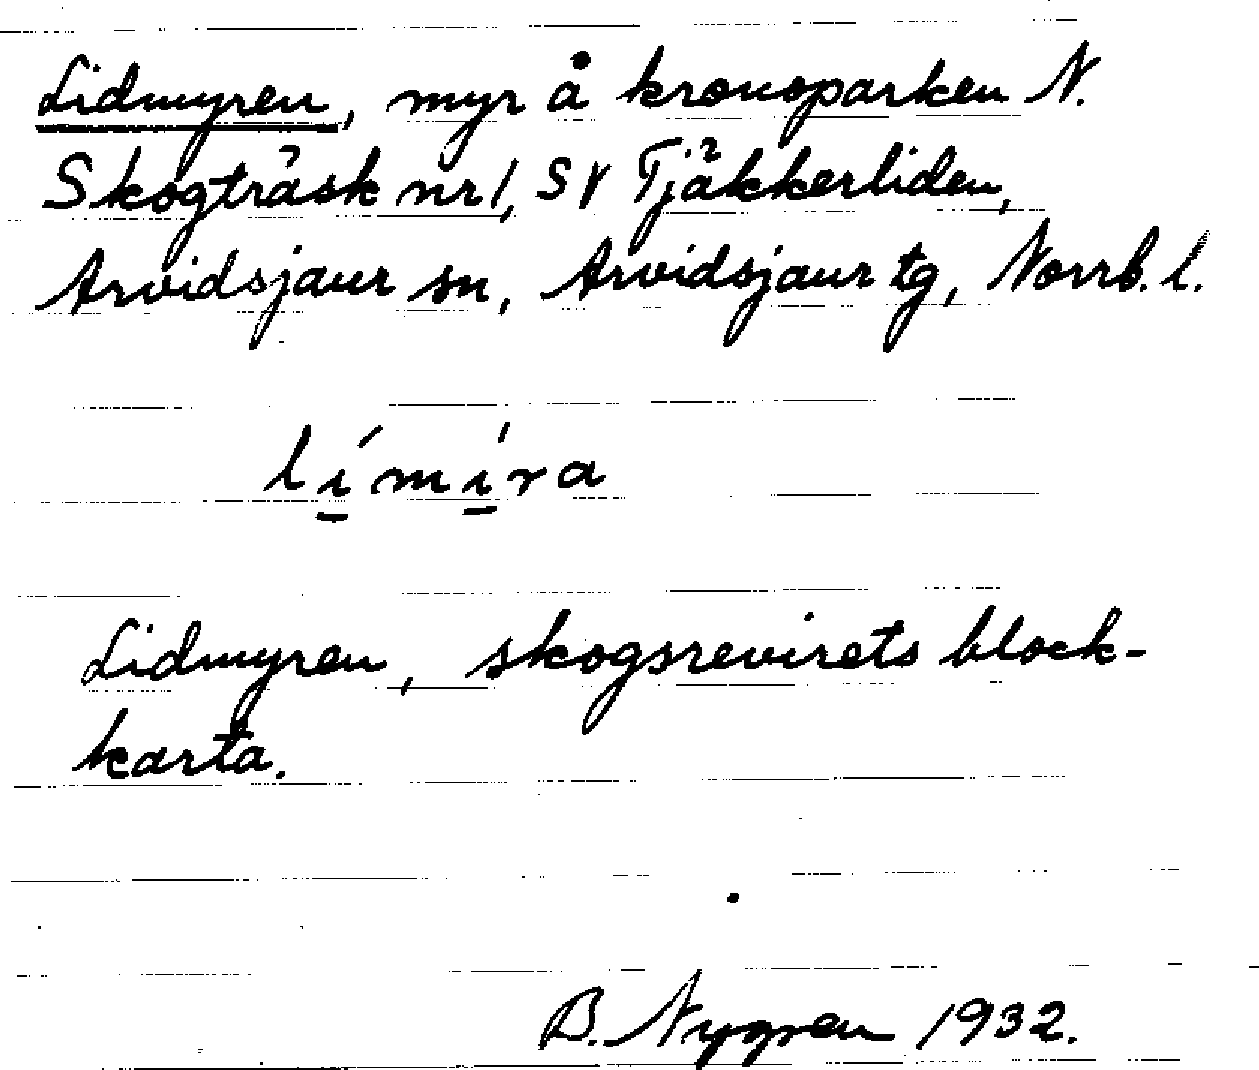 Lidmyren, myr å kronoparken N.
Skogträsk nr 1, SV Tjäkkerliden,
Arvidsjaur sn, Arvidsjaur tg, Norrb. l.
lí̲mí̲ra
Lidmyren, skogsrevirets block-
karta.
B. Nygren 1932.